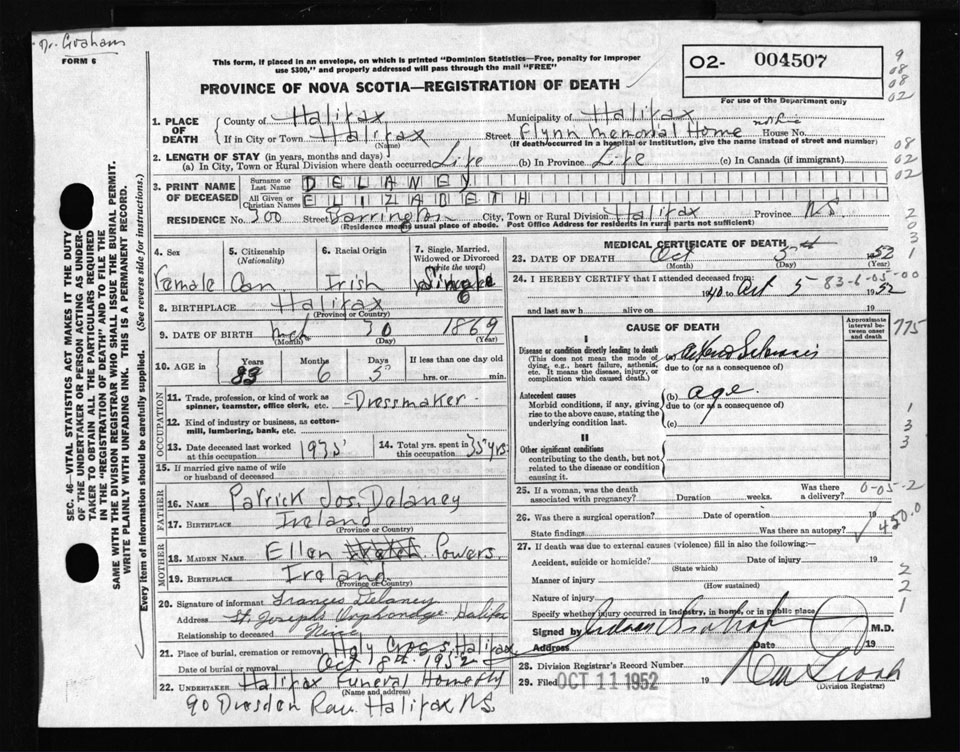 Dr. Graham
FORM 6
This form, if placed in an envelope, on which is printed "Dominion Statistics—Free, penalty for improper
use $300," and properly addressed will pass through the mail "FREE"
PROVINCE OF NOVA SCOTIA—REGISTRATION OF DEATH
O2- 004507
For use of the Department only
9
08
08
02
1. PLACE OF DEATH
County of Halifax Municipality of Halifax
If in City or Town Halifax Street Flynn Memorial Home House No.
(Name) (If death occurred in a hospital or institution, give the name instead of street and number)
2. LENGTH OF STAY (in years, months and days)
(a) In City, Town or Rural Division where death occurred Life (b) In Province Life (c) In Canada (if immigrant)
08
02
02
3. PRINT NAME OF DECEASED
Surname or Last Name DELANEY
All Given or Christian Names ELIZABETH
RESIDENCE No. 300 Street Barrington City, Town or Rural Division Halifax Province N.S.
(Residence means usual place of abode. Post Office Address for residents in rural parts not sufficient)
2
0
3
1
4. Sex 5. Citizenship (Nationality) 6. Racial Origin 7. Single, Married, Widowed or Divorced (write the word)
Female Can. Irish Single
6
8. BIRTHPLACE Halifax
(Province or Country)
9. DATE OF BIRTH Mch 30 1869
(Month) (Day) (Year)
10. AGE in Years Months Days If less than one day old
83 6 5 hrs. or min.
OCCUPATION
11. Trade, profession, or kind of work as spinner, teamster, office clerk, etc. Dressmaker
12. Kind of industry or business, as cotton-mill, lumbering, bank, etc.
13. Date deceased last worked at this occupation 1935 14. Total yrs. spent in this occupation 35 yrs.
15. If married give name of wife or husband of deceased
FATHER
16. NAME Patrick Jos. Delaney
17. BIRTHPLACE Ireland
(Province or Country)
MOTHER
18. MAIDEN NAME Ellen Powers.
19. BIRTHPLACE Ireland
(Province or Country)
20. Signature of informant Frances Delaney
Address St. Joseph's Orphanage Halifax
Relationship to deceased Niece
21. Place of burial, cremation or removal Holy Cross, Halifax
Date of burial or removal Oct 8th. 1952
22. UNDERTAKER Halifax Funeral Home
(Name and address)
90 Dresden Row Halifax NS.
MEDICAL CERTIFICATE OF DEATH
23. DATE OF DEATH Oct 5th 1952
(Month) (Day) (Year)
24. I HEREBY CERTIFY that I attended deceased from:
83-6-05-00
1940 to Oct 5 1952
and last saw h alive on 19
CAUSE OF DEATH
Approximate interval between onset and death
775
I
Disease or condition directly leading to death
(This does not mean the mode of dying, e.g., heart failure, asthenia, etc. It means the disease, injury, or complication which caused death.)
(a)
due to (or as a consequence of)
Antecedent causes
Morbid conditions, if any, giving rise to the above cause, stating the underlying condition last.
(b) age.
due to (or as a consequence of)
(c)
1
3
3
II
Other significant conditions
contributing to the death, but not related to the disease or condition causing it.
25. If a woman, was the death associated with pregnancy? Duration weeks. Was there a delivery?
0-05-2
26. Was there a surgical operation? Date of operation 19
State findings Was there an autopsy?
450.0
27. If death was due to external causes (violence) fill in also the following:
Accident, suicide or homicide? Date of injury 19
(State which)
Manner of injury
(How sustained)
Nature of injury
Specify whether injury occurred in industry, in home, or in public place
2
2
1
Signed by M.D.
Address Date 19
28. Division Registrar's Record Number
29. Filed OCT 11 1952 19
(Division Registrar)
SEC. 46—VITAL STATISTICS ACT MAKES IT THE DUTY
OF THE UNDERTAKER OR PERSON ACTING AS UNDER-
TAKER TO OBTAIN ALL THE PARTICULARS REQUIRED
IN THE "REGISTRATION OF DEATH" AND TO FILE THE
SAME WITH THE DIVISION REGISTRAR WHO SHALL ISSUE THE BURIAL PERMIT.
WRITE PLAINLY WITH UNFADING INK. THIS IS A PERMANENT RECORD.
Every item of information should be carefully supplied. (See reverse side for instructions.)